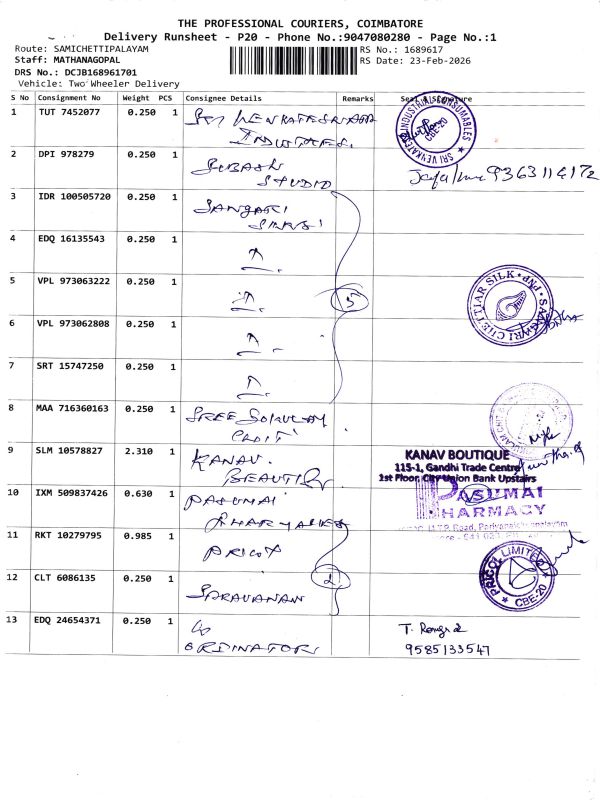 THE PROFESSIONAL COURIERS, COIMBATORE
Delivery Runsheet - P20 - Phone No.:9047080280 - Page No.:1
Route: SAMICHETTIPALAYAM
RS No.: 1689617
Staff: MATHANAGOPAL
RS Date: 23-Feb-2026
DRS No.: DCJB168961701
Vehicle: Two Wheeler Delivery
S No Consignment No Weight PCS Consignee Details Remarks Seal & Signature
1 TUT 7452077 0.250 1 SRI VENKATESWARA
INDUSTRIES.
INDUSTRIAL CONSUMABLES
SRI VENKATE
CBE-20
2 DPI 978279 0.250 1 SUBASH
STUDIO
9363114172
3 IDR 100505720 0.250 1 SANGARI
4 EDQ 16135543 0.250 1
5 VPL 973063222 0.250 1 5
CHETTIAR SILK
PNP
6 VPL 973062808 0.250 1
7 SRT 15747250 0.250 1
8 MAA 716360163 0.250 1 SREE GOKULAM
9 SLM 10578827 2.310 1 KANAV
BEAUTI
KANAV BOUTIQUE
115-1, Gandhi Trade Centre
1st Floor, City Union Bank Upstairs
10 IXM 509837426 0.630 1 PASUMAI
PHARMACY
PASUMAI
PHARMACY
Road, Periyanaickenpalayam
11 RKT 10279795 0.985 1 PRICOL
2
PRICOL LIMITED
CBE-20
12 CLT 6086135 0.250 1 SARAVANAN
13 EDQ 24654371 0.250 1 CO
ORDINATOR
T.
9585133547